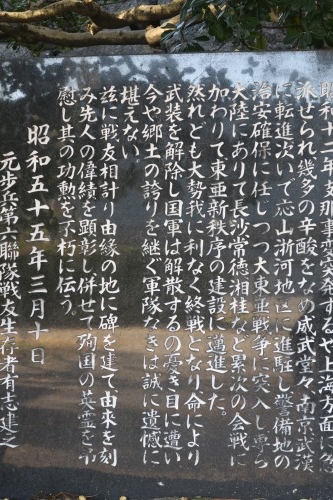 昭和十二年支那事変突発するや上海方面に
派せられ幾多の辛酸をなめ威武堂々南京武漢
に転進次いで応山淅河地区に進駐し警備地の
治安確保に任しつつ大東亜戦争に突入し専ら
大陸にありて長沙常徳湘桂など累次の会戦に
加わりて東亜新秩序の建設に邁進した。
然れども大勢我に利なく終戦となり命により
武装を解除し国軍は解散するの憂き目に遭い
今や郷土の誇りを継ぐ軍隊なきは誠に遺憾に
堪えない
茲に戦友相計り由縁の地に碑を建て、由来を刻
み先人の偉績を顕彰し併せて殉国の英霊を弔
慰し其の功勲を不朽に伝う。
昭和五十五年三月十日
元歩兵第六聯隊戦友生存者有志建之